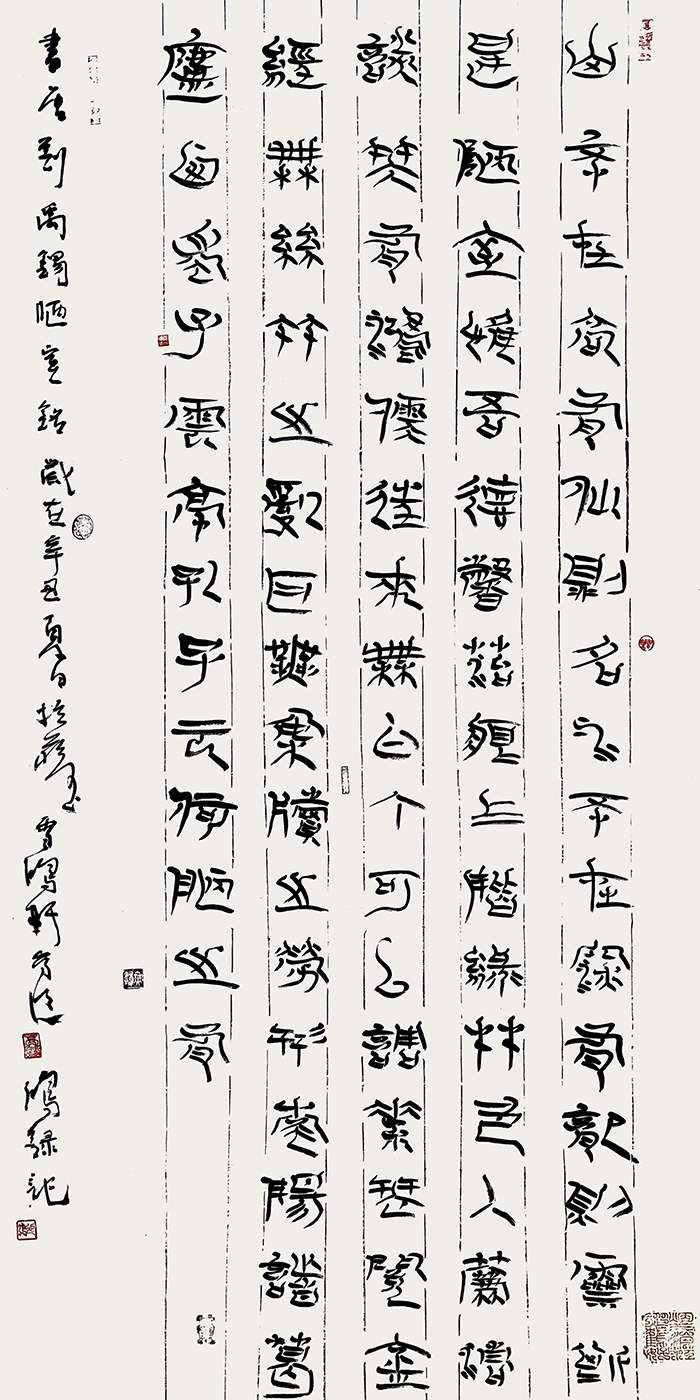 山不在高有仙則名水不在深有龍則靈斯
是陋室惟吾德馨苔痕上階綠艸色入簾青
談笑有鴻儒往來無白丁可以調素琴閱金
經無絲竹之亂耳無案牘之勞形南陽諸葛
廬西蜀子雲亭孔子云何陋之有
書唐劉禹錫陋室銘歲在辛丑夏日於